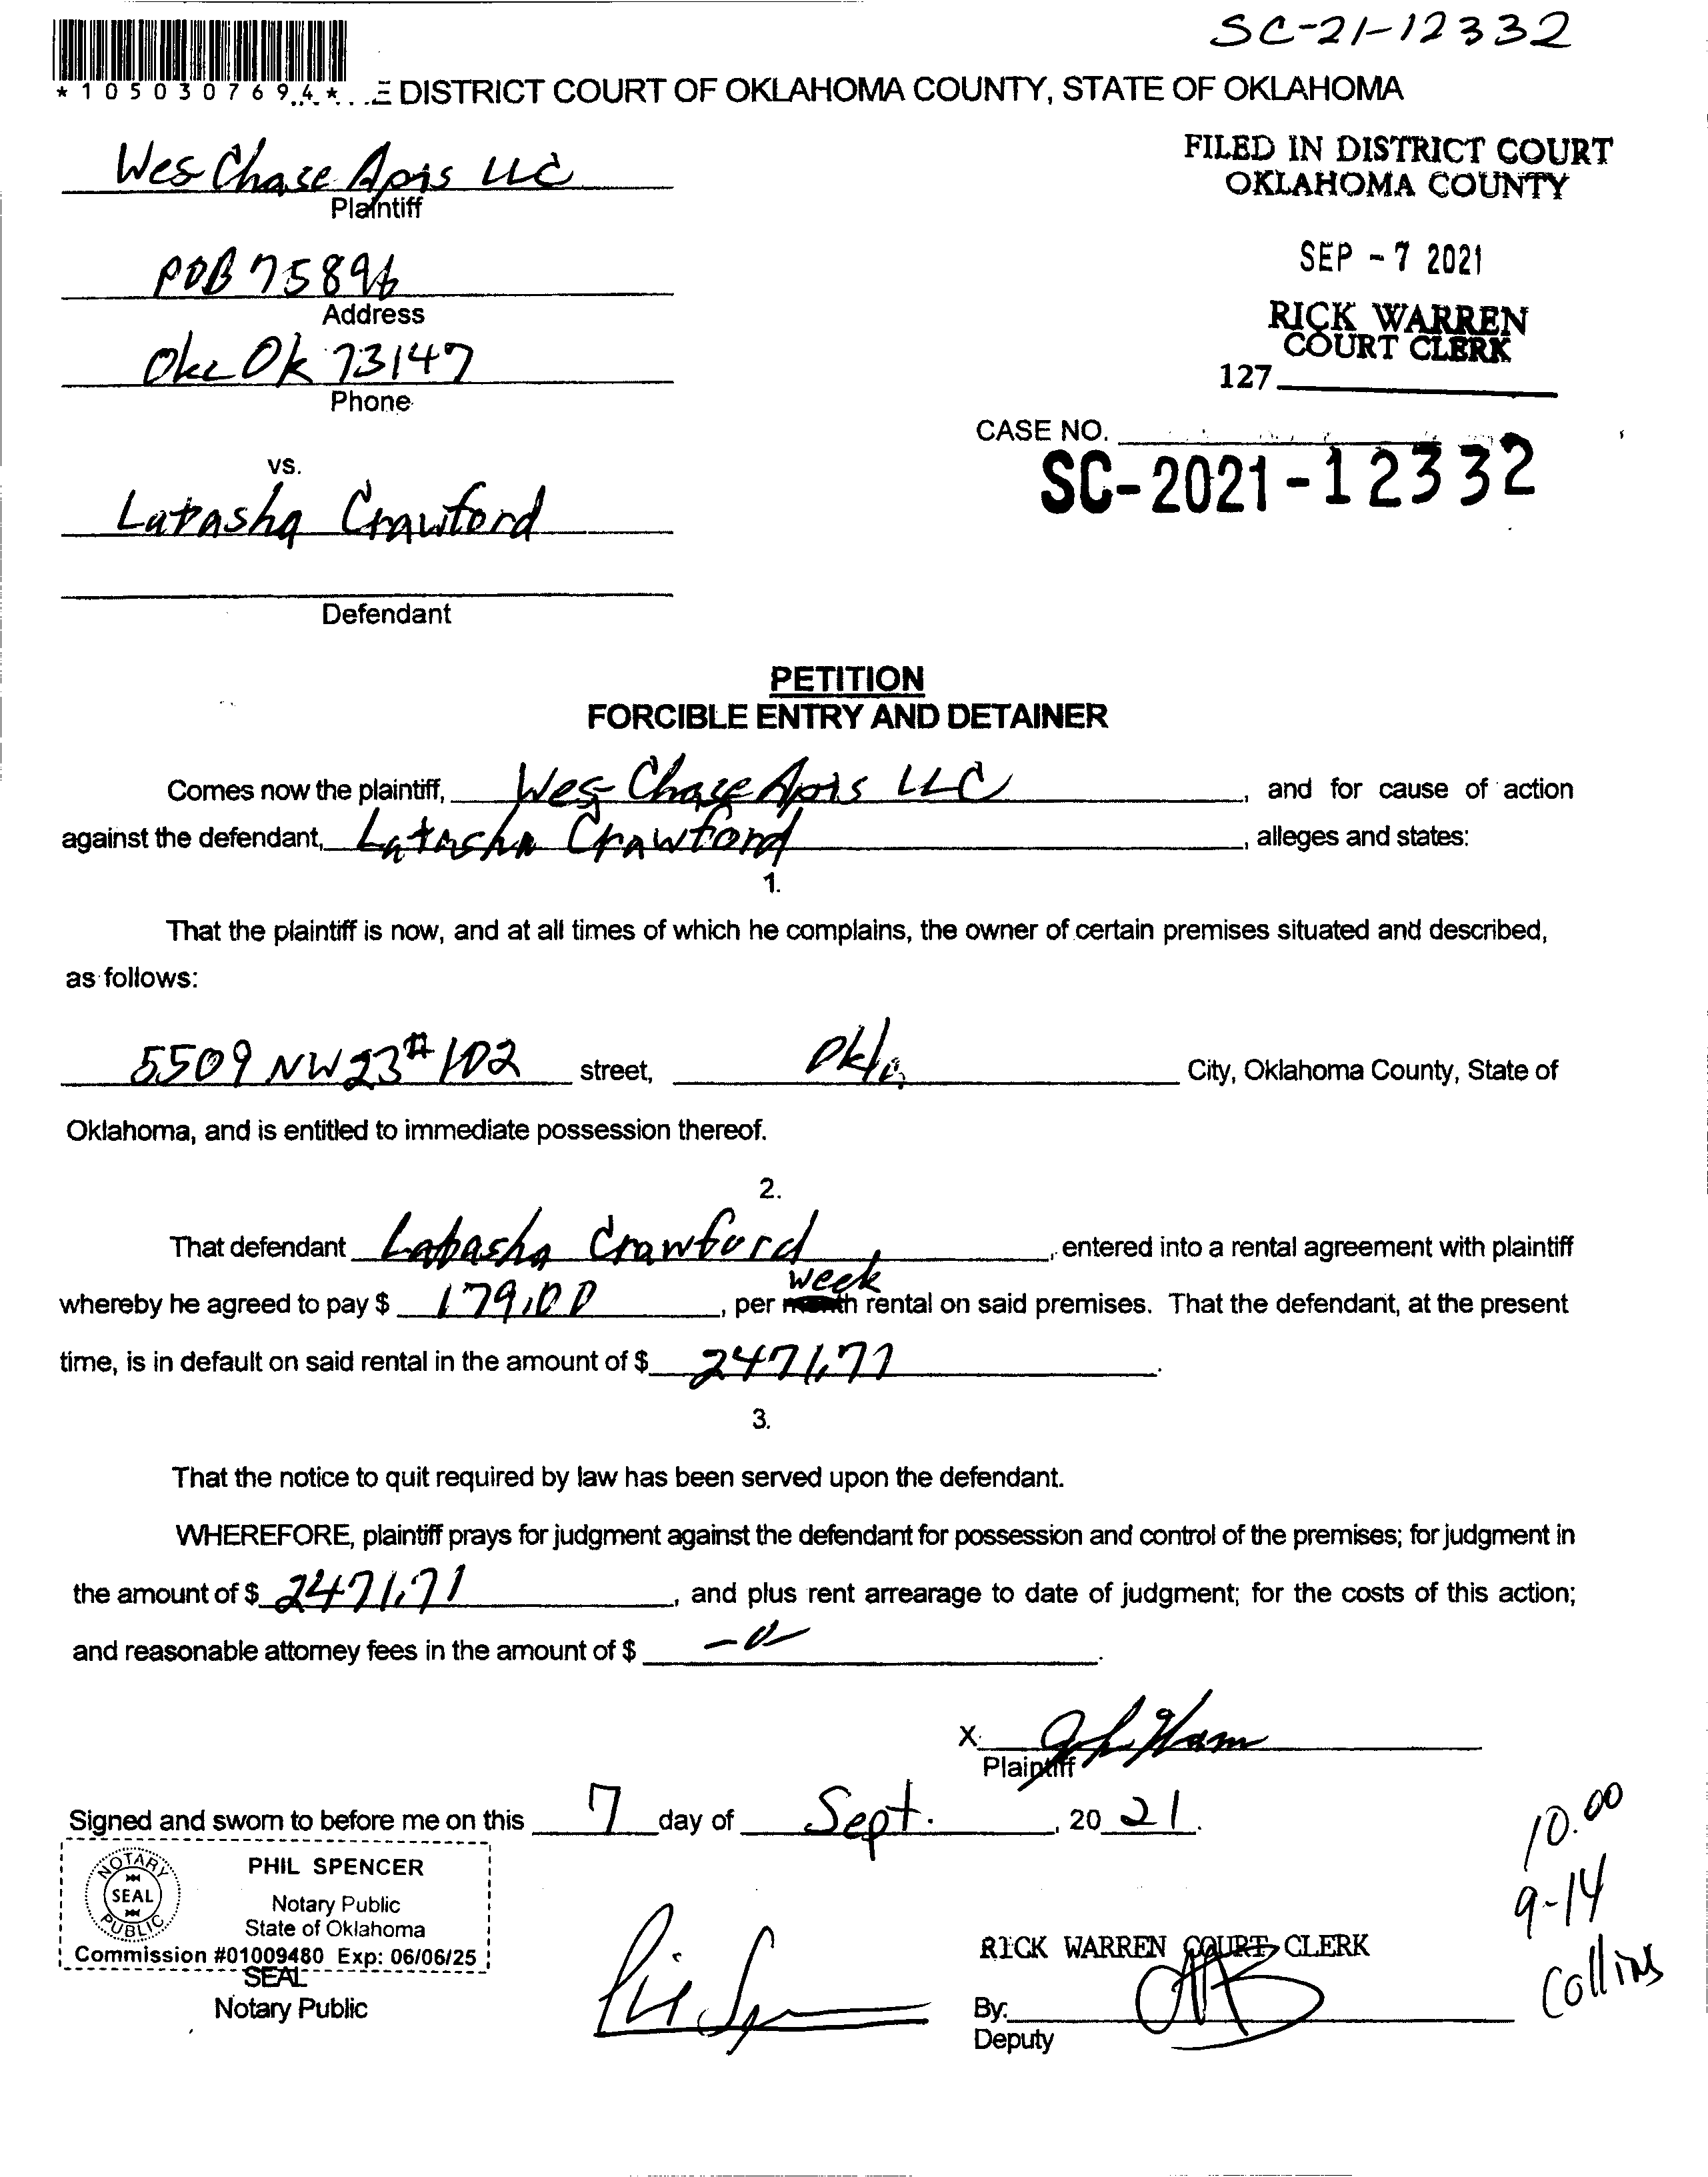 SC-21-12332
*1050307694* DISTRICT COURT OF OKLAHOMA COUNTY, STATE OF OKLAHOMA
Wes Chase Apts LLC
Plaintiff
FILED IN DISTRICT COURT
OKLAHOMA COUNTY
POB 75896
Address
SEP - 7 2021
RICK WARREN
COURT CLERK
Okc Ok 73147
Phone
127
CASE NO.
SC-2021-12332
vs.
Latasha Crawford
Defendant
PETITION
FORCIBLE ENTRY AND DETAINER
Comes now the plaintiff, Wes Chase Apts LLC, and for cause of action
against the defendant, Latasha Crawford, alleges and states:
1.
That the plaintiff is now, and at all times of which he complains, the owner of certain premises situated and described,
as follows:
5509 NW 23 # 102 street, Okla City, Oklahoma County, State of
Oklahoma, and is entitled to immediate possession thereof.
2.
That defendant Latasha Crawford, entered into a rental agreement with plaintiff
whereby he agreed to pay $ 179.00, per week rental on said premises. That the defendant, at the present
time, is in default on said rental in the amount of $ 2471.71.
3.
That the notice to quit required by law has been served upon the defendant.
WHEREFORE, plaintiff prays for judgment against the defendant for possession and control of the premises; for judgment in
the amount of $ 2471.71, and plus rent arrearage to date of judgment; for the costs of this action;
and reasonable attorney fees in the amount of $ -0-.
X
Plaintiff
Signed and sworn to before me on this 7 day of Sept., 20 21.
NOTARY
SEAL
PUBLIC
PHIL SPENCER
Notary Public
State of Oklahoma
Commission #01009480 Exp: 06/06/25
SEAL
Notary Public
RICK WARREN COURT CLERK
By:
Deputy
10.00
9-14
Collins